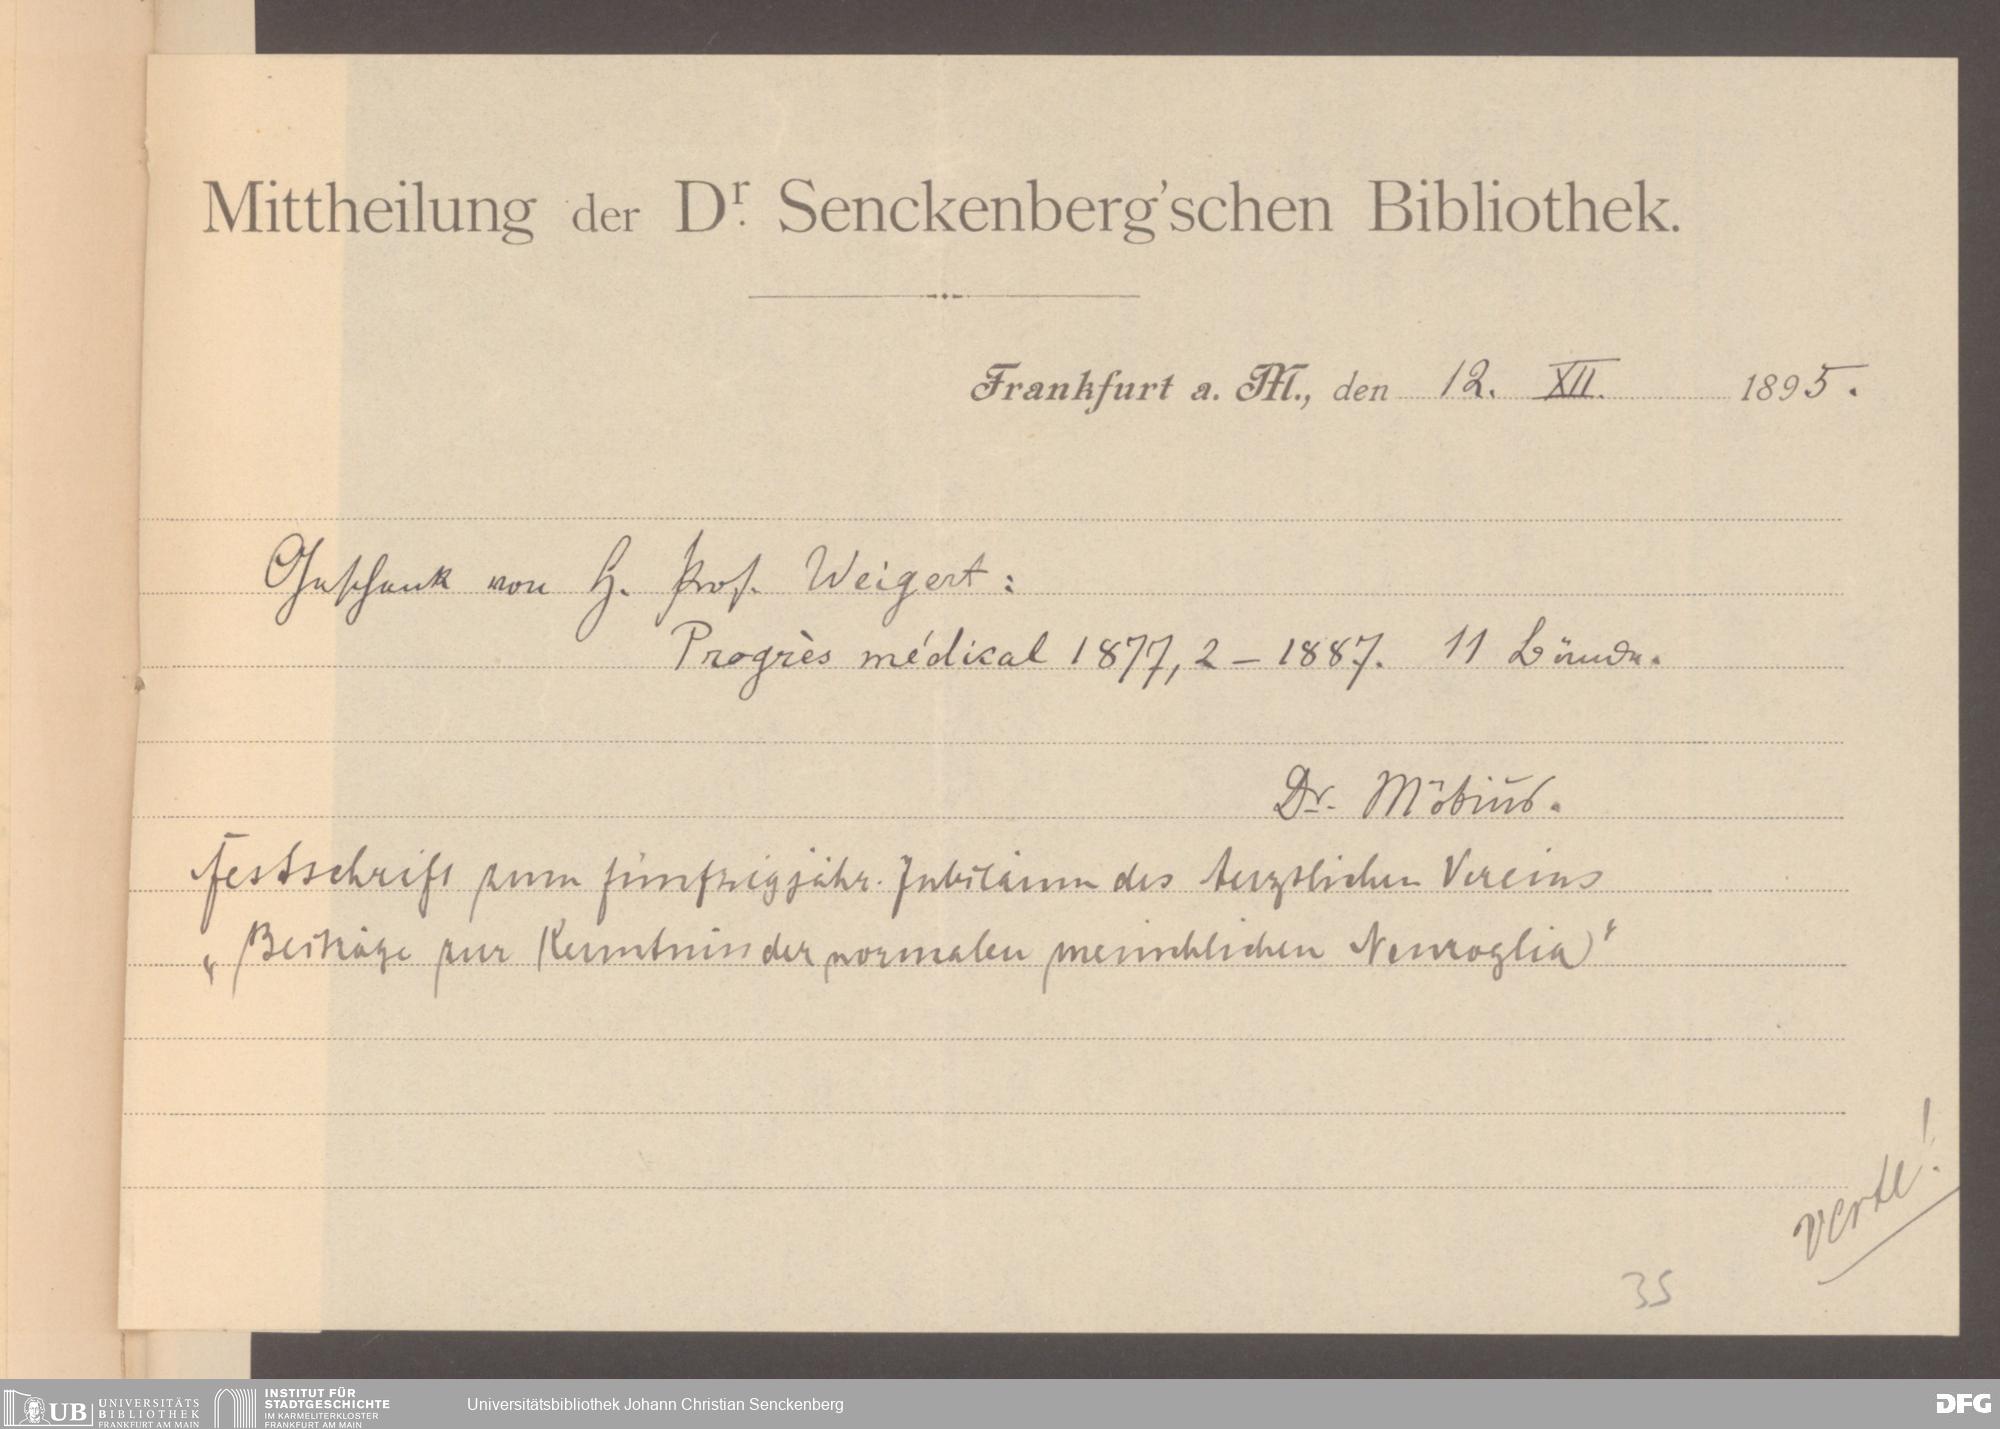 Mittheilung der Dr. Senckenberg'schen Bibliothek.
Frankfurt a. M., den 12. XII. 1895.
Geschenk von H. Prof. Weigert:
Progrès médical 1877, 2 – 1887. 11 Bände.
Dr. Möbius.
Festschrift zum fünfzigjähr. Jubiläum des Aerztlichen Vereins
„Beiträge zur Kenntniss der normalen menschlichen Neuroglia"
verte!
35
UB UNIVERSITÄTS
BIBLIOTHEK
FRANKFURT AM MAIN
INSTITUT FÜR
STADTGESCHICHTE
IM KARMELITERKLOSTER
FRANKFURT AM MAIN
Universitätsbibliothek Johann Christian Senckenberg
DFG